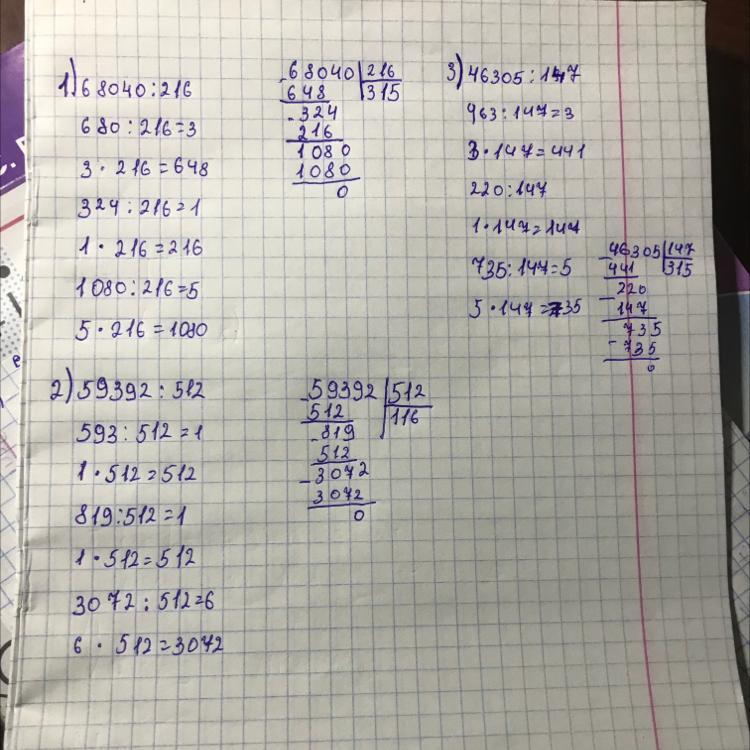 1) 68040 : 216
680 : 216 = 3
3 · 216 = 648
324 : 216 = 1
1 · 216 = 216
1080 : 216 = 5
5 · 216 = 1080
- 68040 | 216
648 | 315
- 324
216
1080
1080
0
2) 59392 : 512
593 : 512 = 1
1 · 512 = 512
819 : 512 = 1
1 · 512 = 512
3072 : 512 = 6
6 · 512 = 3072
- 59392 | 512
512 | 116
- 819
512
- 3072
3072
0
3) 46305 : 147
963 : 147 = 3
3 · 147 = 441
220 : 147
1 · 147 = 147
735 : 147 = 5
5 · 147 = 735
- 46305 | 147
441 | 315
- 220
147
- 735
735
0